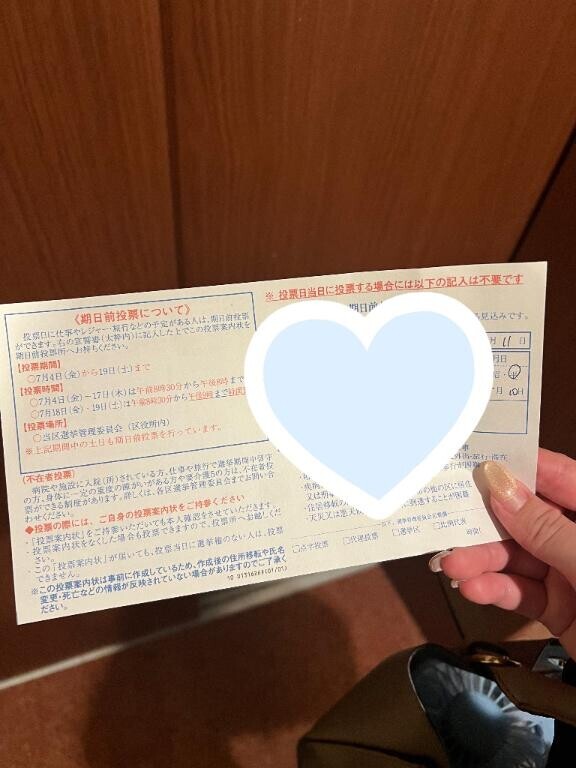 《期日前投票について》
投票日に仕事やレジャー・旅行などの予定がある人は、期日前投票
ができます。右の宣誓書(太枠内)に記入した上でこの投票案内状を
期日前投票所へお持ちください。
【投票期間】
○7月4日(金)から19日(土)まで
【投票時間】
○7月4日(金)～17日(木)は午前8時30分から午後8時まで
○7月18日(金)・19日(土)は午前8時30分から午後9時まで
【投票場所】
○当区選挙管理委員会(区役所内)
※上記期間中の土日も期日前投票を行っています。
(不在者投票)
病院や施設に入院(所)されている方、仕事や旅行で選挙期間中留守
の方、身体に一定の重度の障がいがある方や要介護5の方は、不在者投
票ができる制度があります。詳しくは、各区選挙管理委員会までお問い合
わせください。
◆投票の際には、ご自身の投票案内状をご持参ください
・「投票案内状」をご持参いただいても本人確認をさせていただきます。
・投票案内状をなくした場合も投票できますので、投票所へお越しくだ
さい。
・この「投票案内状」が届いても、投票当日に選挙権のない人は、投票
できません。
※この投票案内状は事前に作成しているため、作成後の住所移転や氏名
変更・死亡などの情報が反映されていない場合がありますのでご了承く
ださい。
※ 投票日当日に投票する場合には以下の記入は不要です
期日前
見込みです。
月 11 日
月日
月 10日
又は
住所移転
の他の区に居住
天災又は悪天
到達することが困難
□点字投票 □代理投票 □選挙区 □比例代表